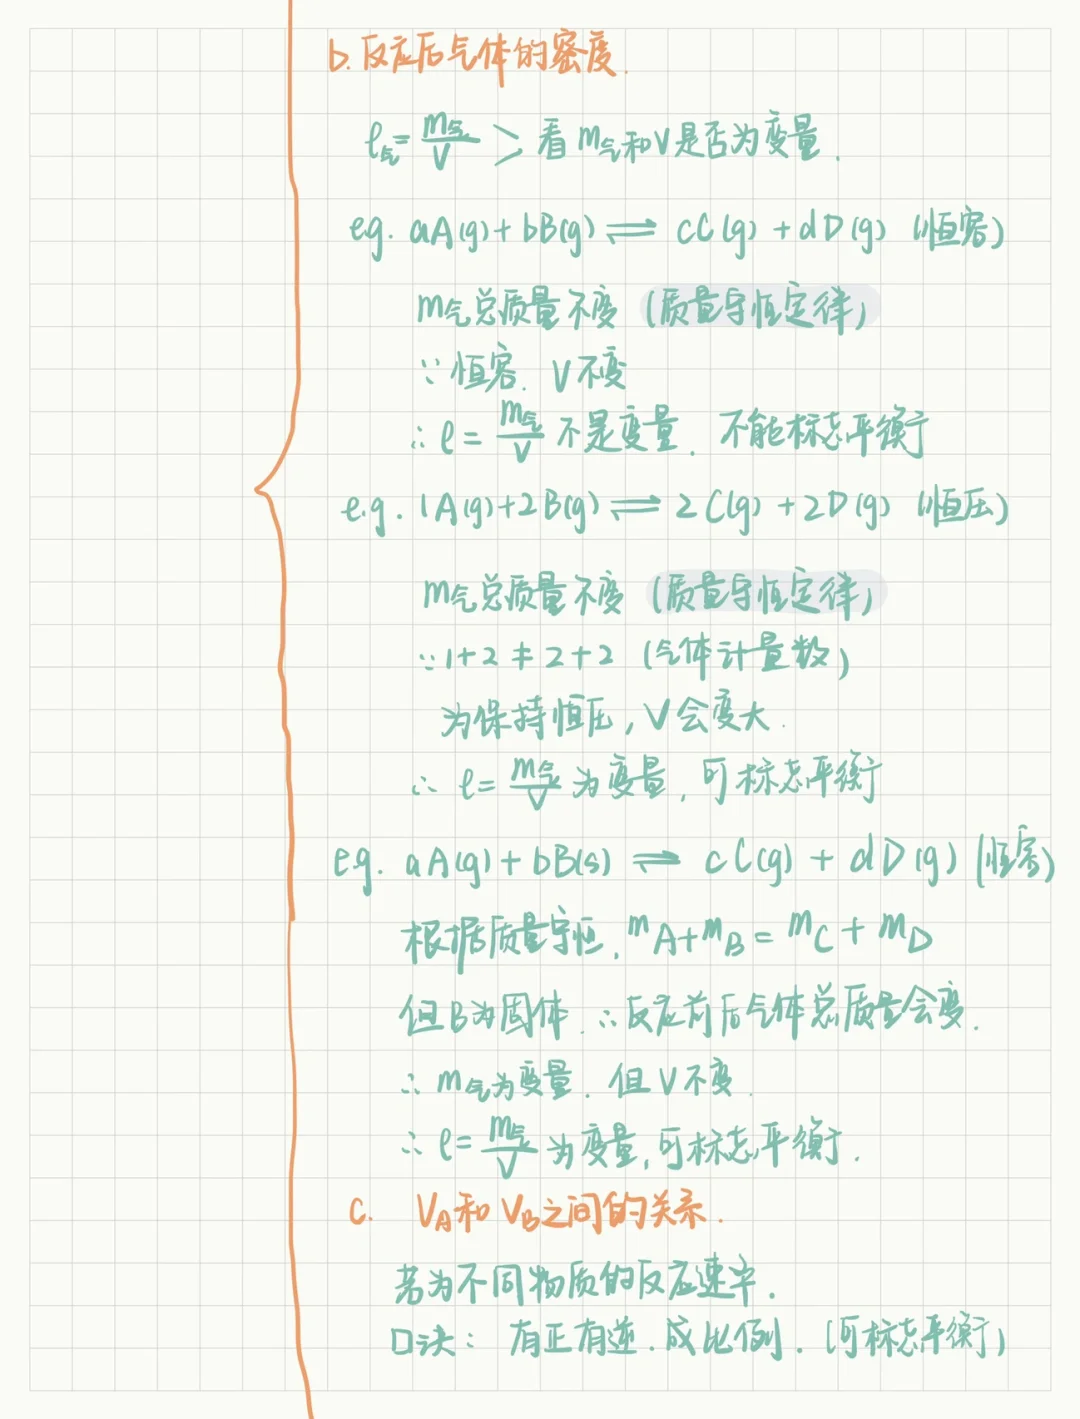 b. 反应后气体的密度.
ρ气 = m气/V > 看m气和V是否为变量.
eg. aA(g)+bB(g)⇌cC(g)+dD(g) (恒容)
m气总质量不变 (质量守恒定律)
∵恒容. V不变
∴ρ=m气/V 不是变量. 不能标志平衡
e.g. 1A(g)+2B(g)⇌2C(g)+2D(g) (恒压)
m气总质量不变 (质量守恒定律)
∵1+2≠2+2 (气体计量数)
为保持恒压, V会变大.
∴ρ=m气/V 为变量, 可标志平衡
eg. aA(g)+bB(s)⇌cC(g)+dD(g) (恒容)
根据质量守恒, mA+mB=mC+mD
但B为固体. ∴反应前后气体总质量会变.
∴m气为变量. 但V不变.
∴ρ=m气/V 为变量, 可标志平衡.
c. VA和VB之间的关系.
若为不同物质的反应速率.
口诀: 有正有逆. 成比例. (可标志平衡)